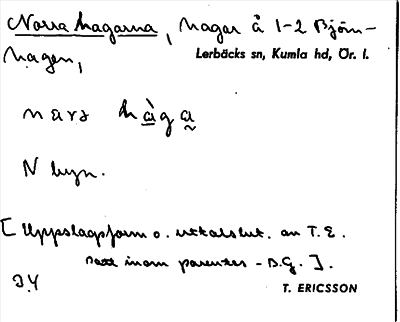 Norra hagarna, hagar å 1-2 Björn-
hagen,
Lerbäcks sn, Kumla hd, Ör. l.
nara hàga
N byn.
[Uppslagsform o. uttalsbet. av T.E.
satt inom parentes - B.G.].
34
T. ERICSSON